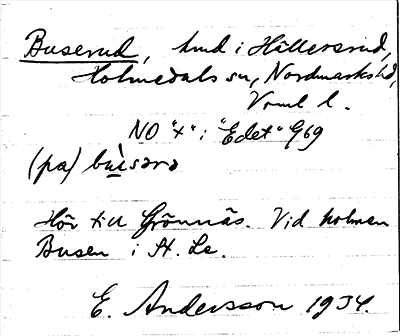 Buserud, hmd i Hällersrud,
Holmedals sn, Nordmarks hd,
Vrml l.
NO "x" i "Edet" 969
(pa) bu̇̀sərə
Hör till Grönnäs. Vid holmen
Busen i St. Le.
E. Andersson 1934.